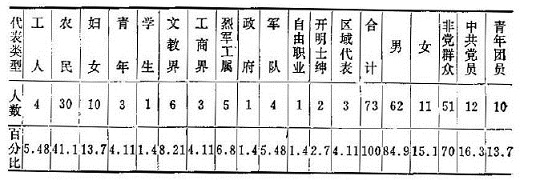 代表类型 工人 农民 妇女 青年 学生 文教界 工商界 烈军工属 政府 军队 自由职业 开明士绅 区域代表 合计 男 女 非党群众 中共党员 青年团员
人数 4 30 10 3 1 6 3 5 1 4 1 2 3 73 62 11 51 12 10
百分比 5.48 41.1 13.7 4.11 1.4 8.21 4.11 6.8 1.4 5.48 1.4 2.7 4.11 100 84.9 15.1 70 16.3 13.7